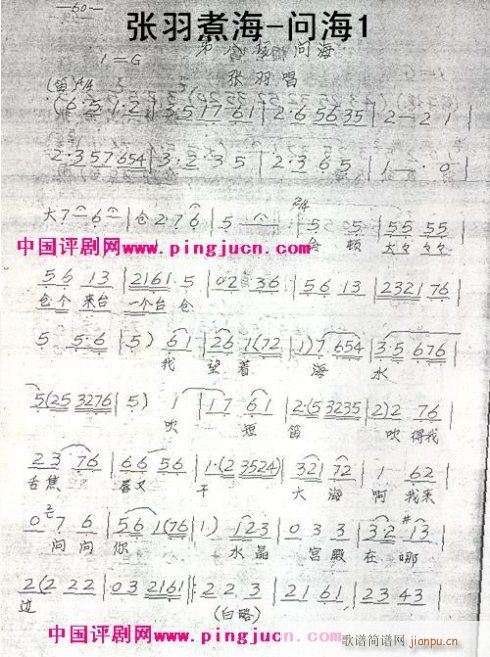 —60—
张羽煮海-问海1
问海
1=G
张羽唱
(笛)4/4
(6·5 1·2 | 3·5 17 61 | 2·6 56 35 | 2—21 |
2·3 57 654 | 3·2 35 | 2·3 65 | 1—·0 |
大7—6— | 仓276 | 5— | 2/4 5 5 | 55 55 |
仓 顿
中国评剧网www.pingjucn.com
56 13 | 2161 5 | 02 36 | 56 13 | 2321 76 |
仓个 来台 一个台 仓
5 5·6 | 5) 61 | 26 1(72 | 1)7 654 | 35 676 |
我 望着 海 水
5(25 3276 | 5) 1 | 17 61 | 2·(5 3235 | 2)2 76 |
吹 短 笛 吹得我
23 76 | 66 56 | 1·(2 3524) | 321 72 | 1 62 |
舌焦 唇又 干 大海 啊 我来
0 7 6 | 56 1(76 | 1) 123 | 0 3 3 | 32 #13 |
问问 你 水晶 宫殿 在哪
2(2 22 | 03 2161 |: 22 3 | 21 61 | 23 43 |
边 (白略)
中国评剧网 www.pingjucn.com
歌谱简谱网
jianpu.cn